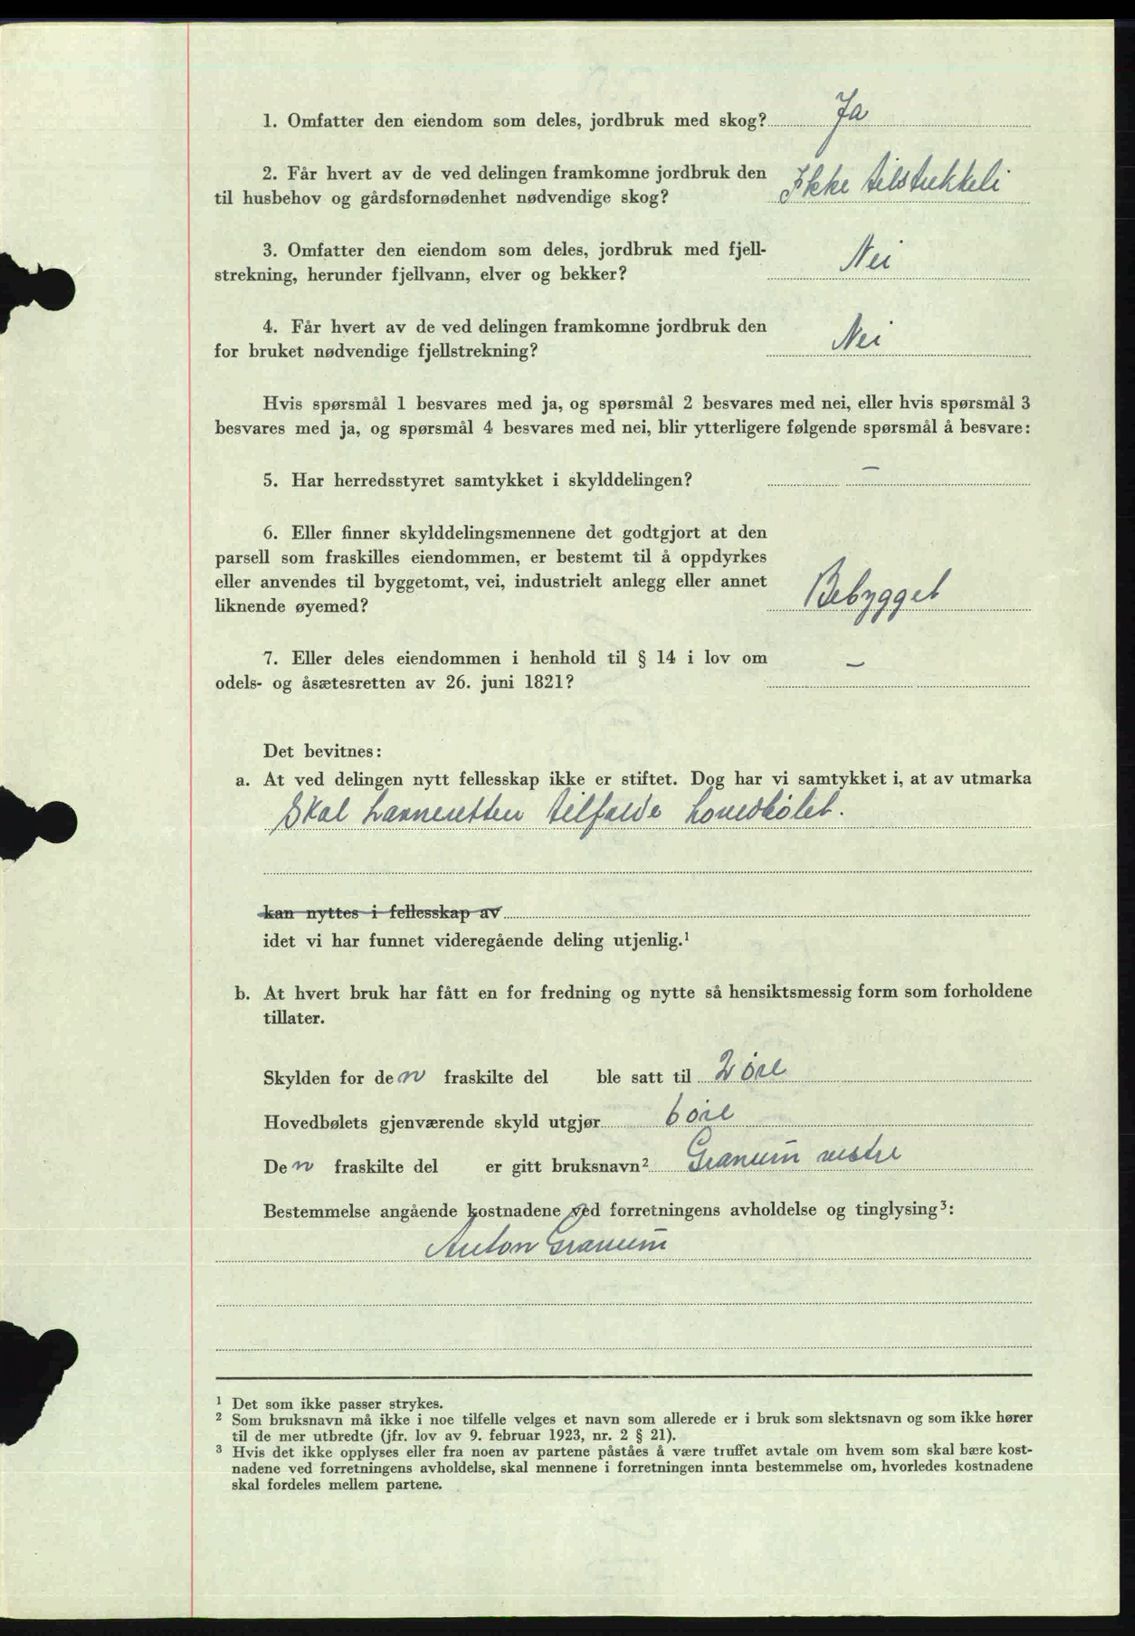 1. Omfatter den eiendom som deles, jordbruk med skog? Ja
2. Får hvert av de ved delingen framkomne jordbruk den
til husbehov og gårdsfornødenhet nødvendige skog? Ikke tilstrekkeli
3. Omfatter den eiendom som deles, jordbruk med fjell-
strekning, herunder fjellvann, elver og bekker? Nei
4. Får hvert av de ved delingen framkomne jordbruk den
for bruket nødvendige fjellstrekning? Nei
Hvis spørsmål 1 besvares med ja, og spørsmål 2 besvares med nei, eller hvis spørsmål 3
besvares med ja, og spørsmål 4 besvares med nei, blir ytterligere følgende spørsmål å besvare:
5. Har herredsstyret samtykket i skylddelingen? —
6. Eller finner skylddelingsmennene det godtgjort at den
parsell som fraskilles eiendommen, er bestemt til å oppdyrkes
eller anvendes til byggetomt, vei, industrielt anlegg eller annet
liknende øyemed? Bebygget
7. Eller deles eiendommen i henhold til § 14 i lov om
odels- og åsætesretten av 26. juni 1821? —
Det bevitnes:
a. At ved delingen nytt fellesskap ikke er stiftet. Dog har vi samtykket i, at av utmarka
Skal havneretten tilfalde hovedbølet.
kan nyttes i fellesskap av
idet vi har funnet videregående deling utjenlig.¹
b. At hvert bruk har fått en for fredning og nytte så hensiktsmessig form som forholdene
tillater.
Skylden for den fraskilte del ble satt til 2 øre
Hovedbølets gjenværende skyld utgjør 6 øre
Den fraskilte del er gitt bruksnavn² Granum vestre
Bestemmelse angående kostnadene ved forretningens avholdelse og tinglysing³:
Anton Granum
¹ Det som ikke passer strykes.
² Som bruksnavn må ikke i noe tilfelle velges et navn som allerede er i bruk som slektsnavn og som ikke hører
til de mer utbredte (jfr. lov av 9. februar 1923, nr. 2 § 21).
³ Hvis det ikke opplyses eller fra noen av partene påståes å være truffet avtale om hvem som skal bære kost-
nadene ved forretningens avholdelse, skal mennene i forretningen innta bestemmelse om, hvorledes kostnadene
skal fordeles mellem partene.